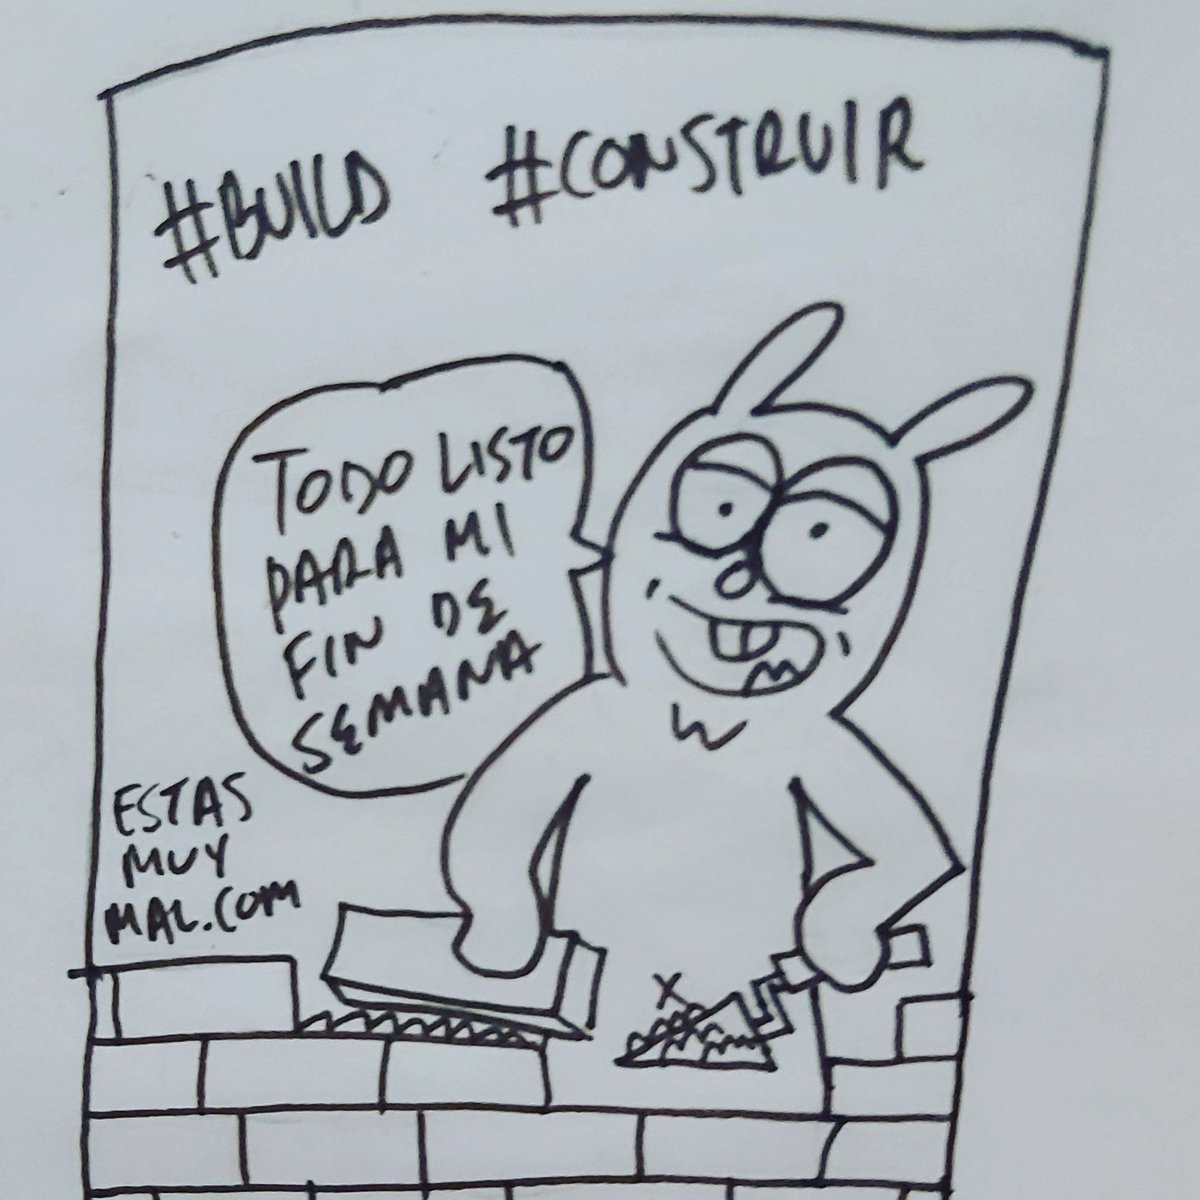 #BUILD #CONSTRUIR
TODO LISTO
PARA MI
FIN DE
SEMANA
ESTAS
MUY
MAL.COM